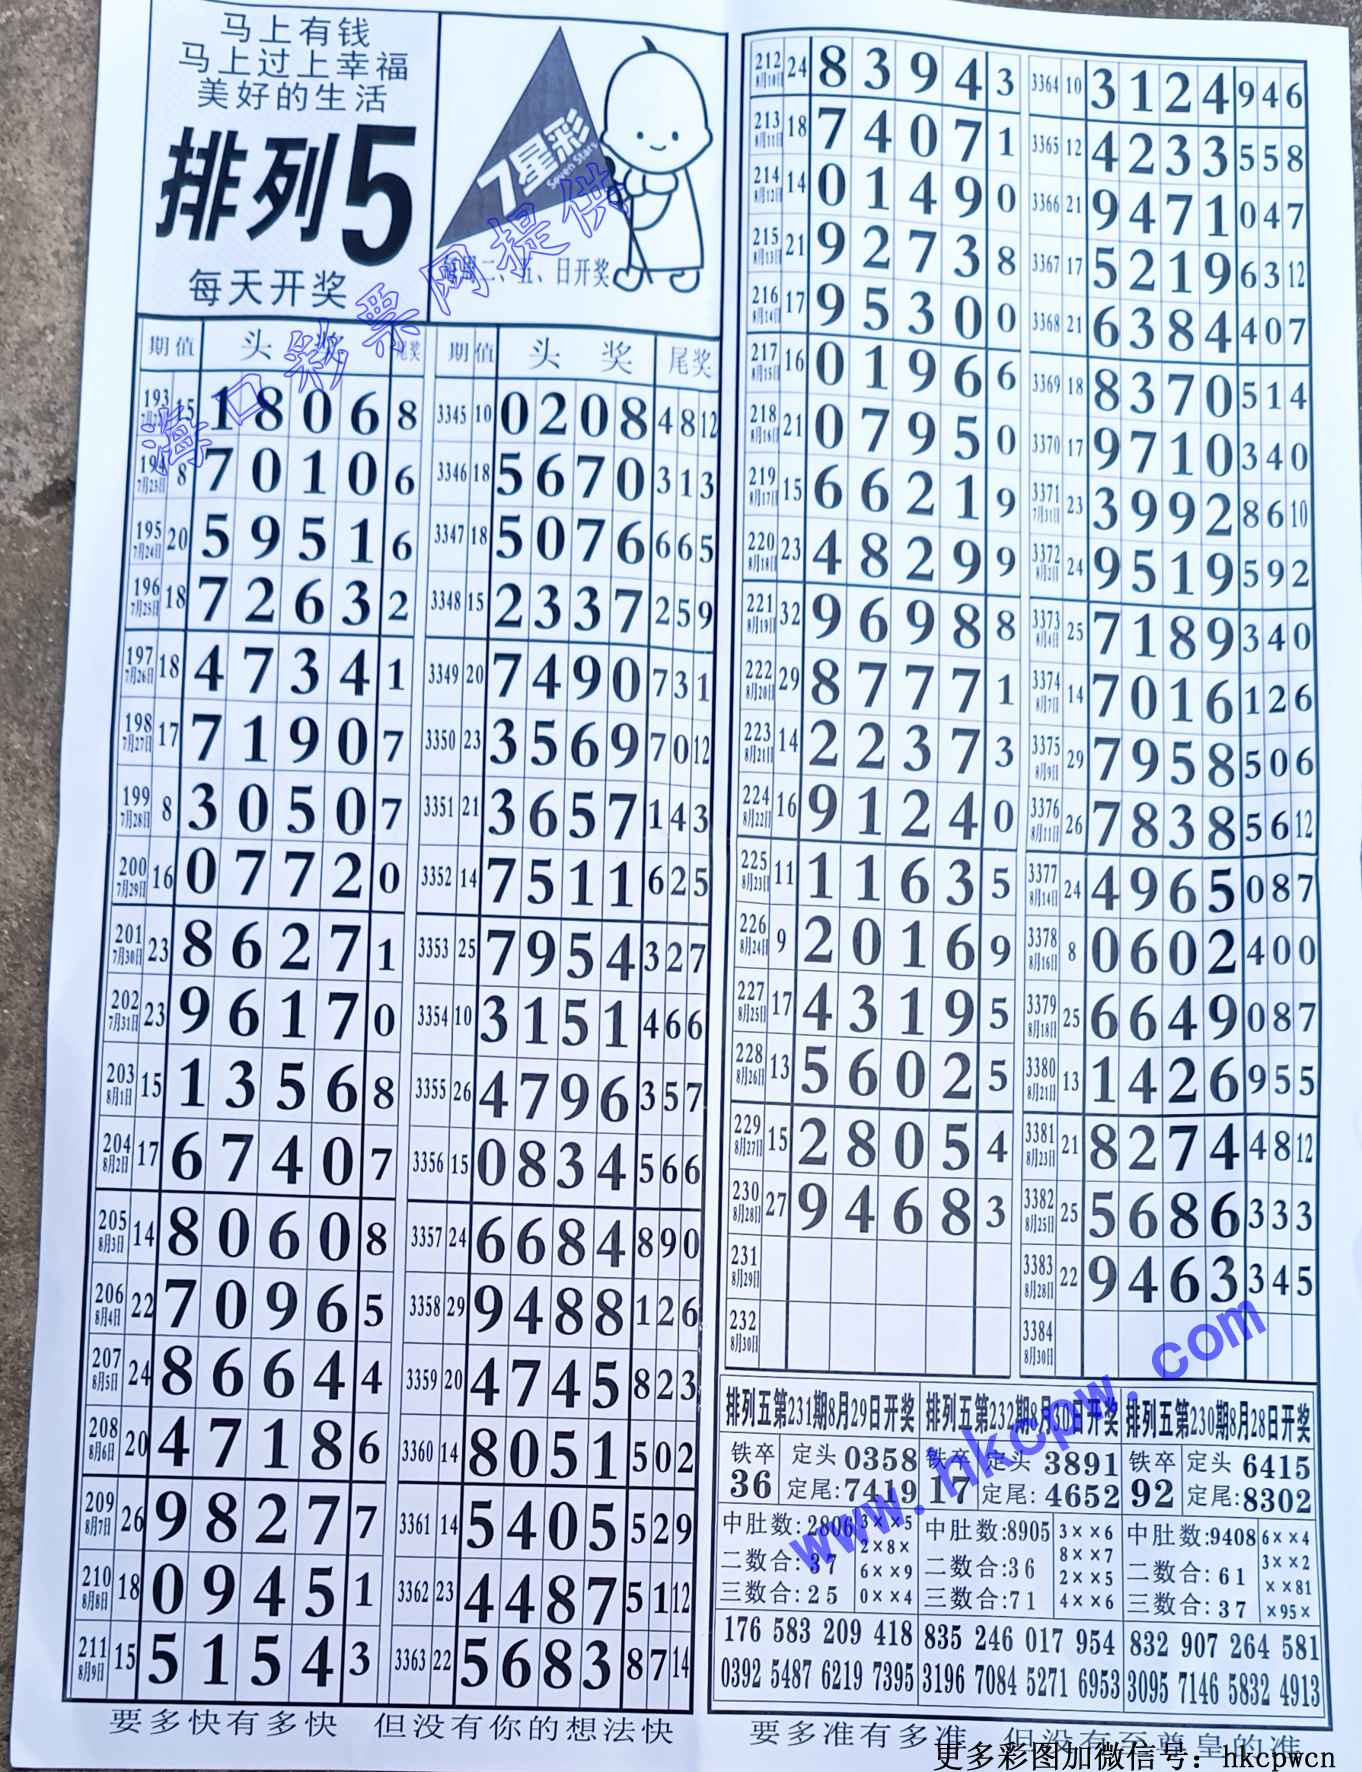 马上有钱
马上过上幸福
美好的生活
排列5
每天开奖
7星彩
Seven Stars
二、五、日开奖
海口彩票网提供
期 值 头 奖 尾奖 期 值 头 奖 尾奖
193 15 1 8 0 6 8 3345 10 0 2 0 8 4 8 12
194 7月23日 8 7 0 1 0 6 3346 18 5 6 7 0 3 1 3
195 7月24日 20 5 9 5 1 6 3347 18 5 0 7 6 6 6 5
196 7月25日 18 7 2 6 3 2 3348 15 2 3 3 7 2 5 9
197 7月26日 18 4 7 3 4 1 3349 20 7 4 9 0 7 3 1
198 7月27日 17 7 1 9 0 7 3350 23 3 5 6 9 7 0 12
199 7月28日 8 3 0 5 0 7 3351 21 3 6 5 7 1 4 3
200 7月29日 16 0 7 7 2 0 3352 14 7 5 1 1 6 2 5
201 7月30日 23 8 6 2 7 1 3353 25 7 9 5 4 3 2 7
202 7月31日 23 9 6 1 7 0 3354 10 3 1 5 1 4 6 6
203 8月1日 15 1 3 5 6 8 3355 26 4 7 9 6 3 5 7
204 8月2日 17 6 7 4 0 7 3356 15 0 8 3 4 5 6 6
205 8月3日 14 8 0 6 0 8 3357 24 6 6 8 4 8 9 0
206 8月4日 22 7 0 9 6 5 3358 29 9 4 8 8 1 2 6
207 8月5日 24 8 6 6 4 4 3359 20 4 7 4 5 8 2 3
208 8月6日 20 4 7 1 8 6 3360 14 8 0 5 1 5 0 2
209 8月7日 26 9 8 2 7 7 3361 14 5 4 0 5 5 2 9
210 8月8日 18 0 9 4 5 1 3362 23 4 4 8 7 5 1 12
211 8月9日 15 5 1 5 4 3 3363 22 5 6 8 3 8 7 14
要多快有多快 但没有你的想法快
212 8月10日 24 8 3 9 4 3 3364 10 3 1 2 4 9 4 6
213 8月11日 18 7 4 0 7 1 3365 12 4 2 3 3 5 5 8
214 8月12日 14 0 1 4 9 0 3366 21 9 4 7 1 0 4 7
215 8月13日 21 9 2 7 3 8 3367 17 5 2 1 9 6 3 12
216 8月14日 17 9 5 3 0 0 3368 21 6 3 8 4 4 0 7
217 8月15日 16 0 1 9 6 6 3369 18 8 3 7 0 5 1 4
218 8月16日 21 0 7 9 5 0 3370 17 9 7 1 0 3 4 0
219 8月17日 15 6 6 2 1 9 3371 7月31日 23 3 9 9 2 8 6 10
220 8月18日 23 4 8 2 9 9 3372 8月2日 24 9 5 1 9 5 9 2
221 8月19日 32 9 6 9 8 8 3373 8月4日 25 7 1 8 9 3 4 0
222 8月20日 29 8 7 7 7 1 3374 8月7日 14 7 0 1 6 1 2 6
223 8月21日 14 2 2 3 7 3 3375 8月9日 29 7 9 5 8 5 0 6
224 8月22日 16 9 1 2 4 0 3376 8月11日 26 7 8 3 8 5 6 12
225 8月23日 11 1 1 6 3 5 3377 8月14日 24 4 9 6 5 0 8 7
226 8月24日 9 2 0 1 6 9 3378 8月16日 8 0 6 0 2 4 0 0
227 8月25日 17 4 3 1 9 5 3379 8月18日 25 6 6 4 9 0 8 7
228 8月26日 13 5 6 0 2 5 3380 8月21日 13 1 4 2 6 9 5 5
229 8月27日 15 2 8 0 5 4 3381 8月23日 21 8 2 7 4 4 8 12
230 8月28日 27 9 4 6 8 3 3382 8月25日 25 5 6 8 6 3 3 3
231 8月29日 3383 8月28日 22 9 4 6 3 3 4 5
232 8月30日 3384 8月30日
排列五第231期8月29日开奖 排列五第232期8月 日开奖 排列五第230期8月28日开奖
铁卒 定头 0358 铁卒 定头 3891 铁卒 定头 6415
36 定尾:7419 17 定尾:4652 92 定尾:8302
中肚数:2806 3××5 中肚数:8905 3××6 中肚数:9408 6××4
二数合:37 2×8× 二数合:36 8××7 二数合:61 3××2
6××9 2××5 ××81
三数合:25 0××4 三数合:71 4××6 三数合:37 ×95×
176 583 209 418 835 246 017 954 832 907 264 581
0392 5487 6219 7395 3196 7084 5271 6953 3095 7146 5832 4913
要多准有多准 但没有至尊皇的准
www.hkcpw.com
更多彩图加微信号：hkcpwcn